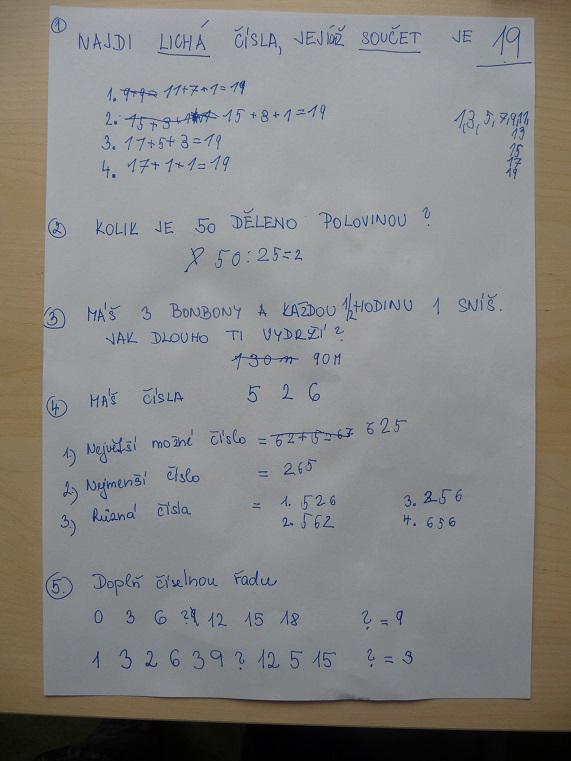 ① NAJDI LICHÁ ČÍSLA, JEJICHŽ SOUČET JE 19
1. 9+9= 11+7+1=19
2. 15+3+1 15+3+1=19
3. 11+5+3=19
4. 17+1+1=19
1,3, 5, 7,9,11,
13
15
17
19
② KOLIK JE 50 DĚLENO POLOVINOU ?
50:25=2
③ MÁŠ 3 BONBONY A KAŽDOU 1/2 HODINU 1 SNÍŠ.
JAK DLOUHO TI VYDRŽÍ ?
130 m 90M
④ MÁŠ ČÍSLA 5 2 6
1.) Největší možné číslo = 62+5=67 625
2.) Nejmenší číslo = 265
3.) Různá čísla = 1. 526 3. 256
2. 562 4. 656
⑤. Doplň číselnou řadu
0 3 6 ?9 12 15 18 ? = 9
1 3 2 6 3 9 ? 12 5 15 ? = 3